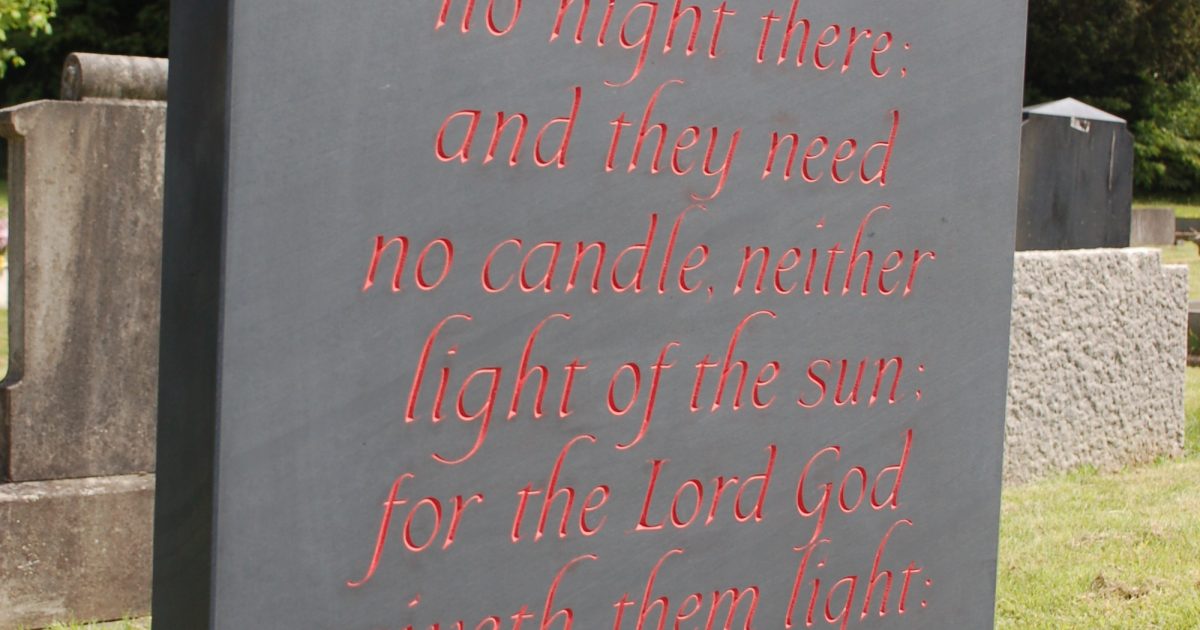 no night there;
and they need
no candle, neither
light of the sun;
for the Lord God
giveth them light: